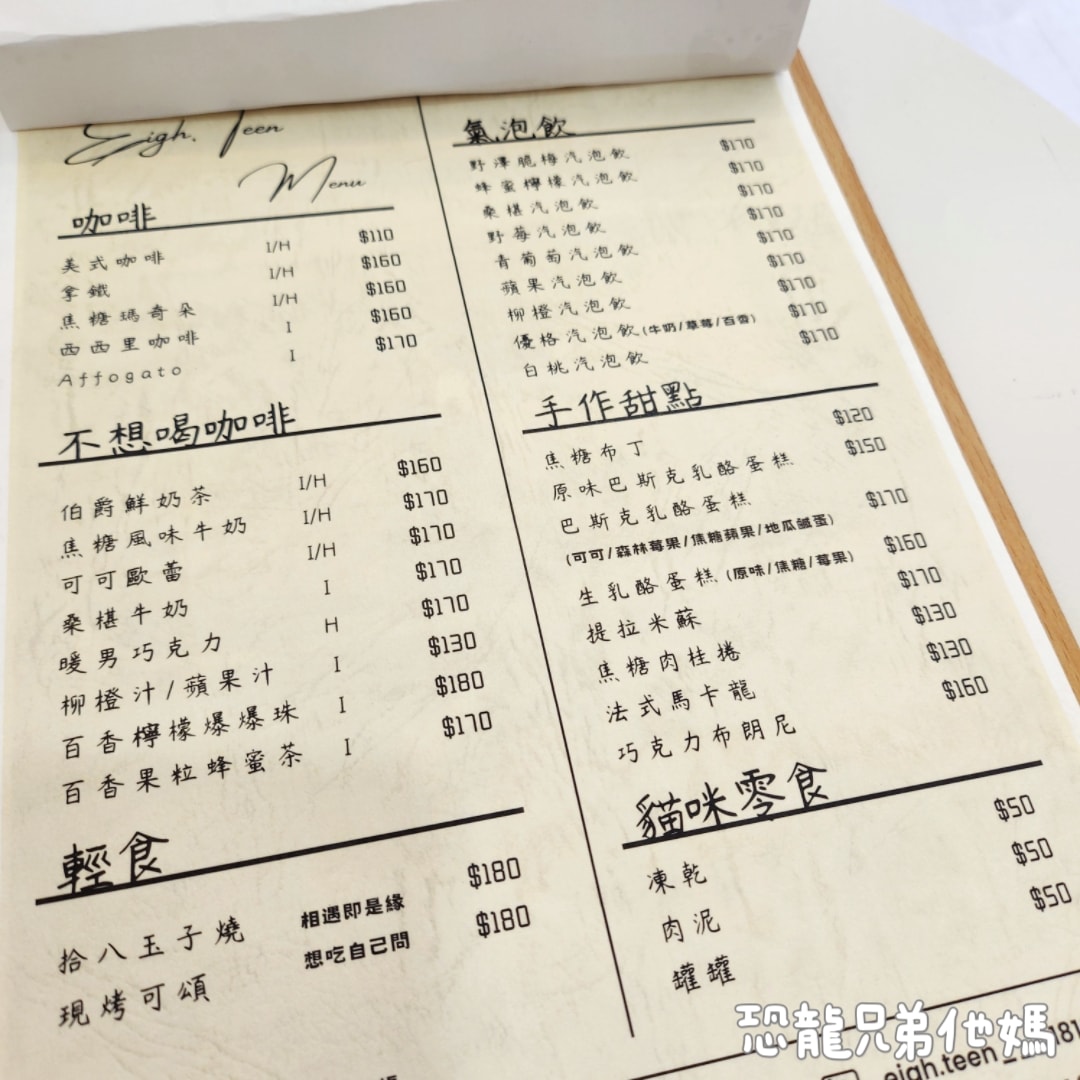 Eigh. Teen
Menu
咖啡
美式咖啡 I/H $110
拿鐵 I/H $160
焦糖瑪奇朵 I/H $160
西西里咖啡 I $160
Affogato I $170
不想喝咖啡
伯爵鮮奶茶 I/H $160
焦糖風味牛奶 I/H $170
可可歐蕾 I/H $170
桑椹牛奶 I $170
暖男巧克力 H $170
柳橙汁/蘋果汁 I $130
百香檸檬爆爆珠 I $180
百香果粒蜂蜜茶 I $170
輕食
拾八玉子燒 相遇即是緣 $180
現烤可頌 想吃自己問 $180
氣泡飲
野澤脆梅汽泡飲 $170
蜂蜜檸檬汽泡飲 $170
桑椹汽泡飲 $170
野莓汽泡飲 $170
青葡萄汽泡飲 $170
蘋果汽泡飲 $170
柳橙汽泡飲 $170
優格汽泡飲(牛奶/草莓/百香) $170
白桃汽泡飲 $170
手作甜點
焦糖布丁 $120
原味巴斯克乳酪蛋糕 $150
巴斯克乳酪蛋糕 $170
(可可/森林莓果/焦糖蘋果/地瓜鹹蛋)
生乳酪蛋糕(原味/焦糖/莓果) $160
提拉米蘇 $170
焦糖肉桂捲 $130
法式馬卡龍 $130
巧克力布朗尼 $160
貓咪零食
凍乾 $50
肉泥 $50
罐罐 $50
恐龍兄弟他媽
eigh.teen_
181